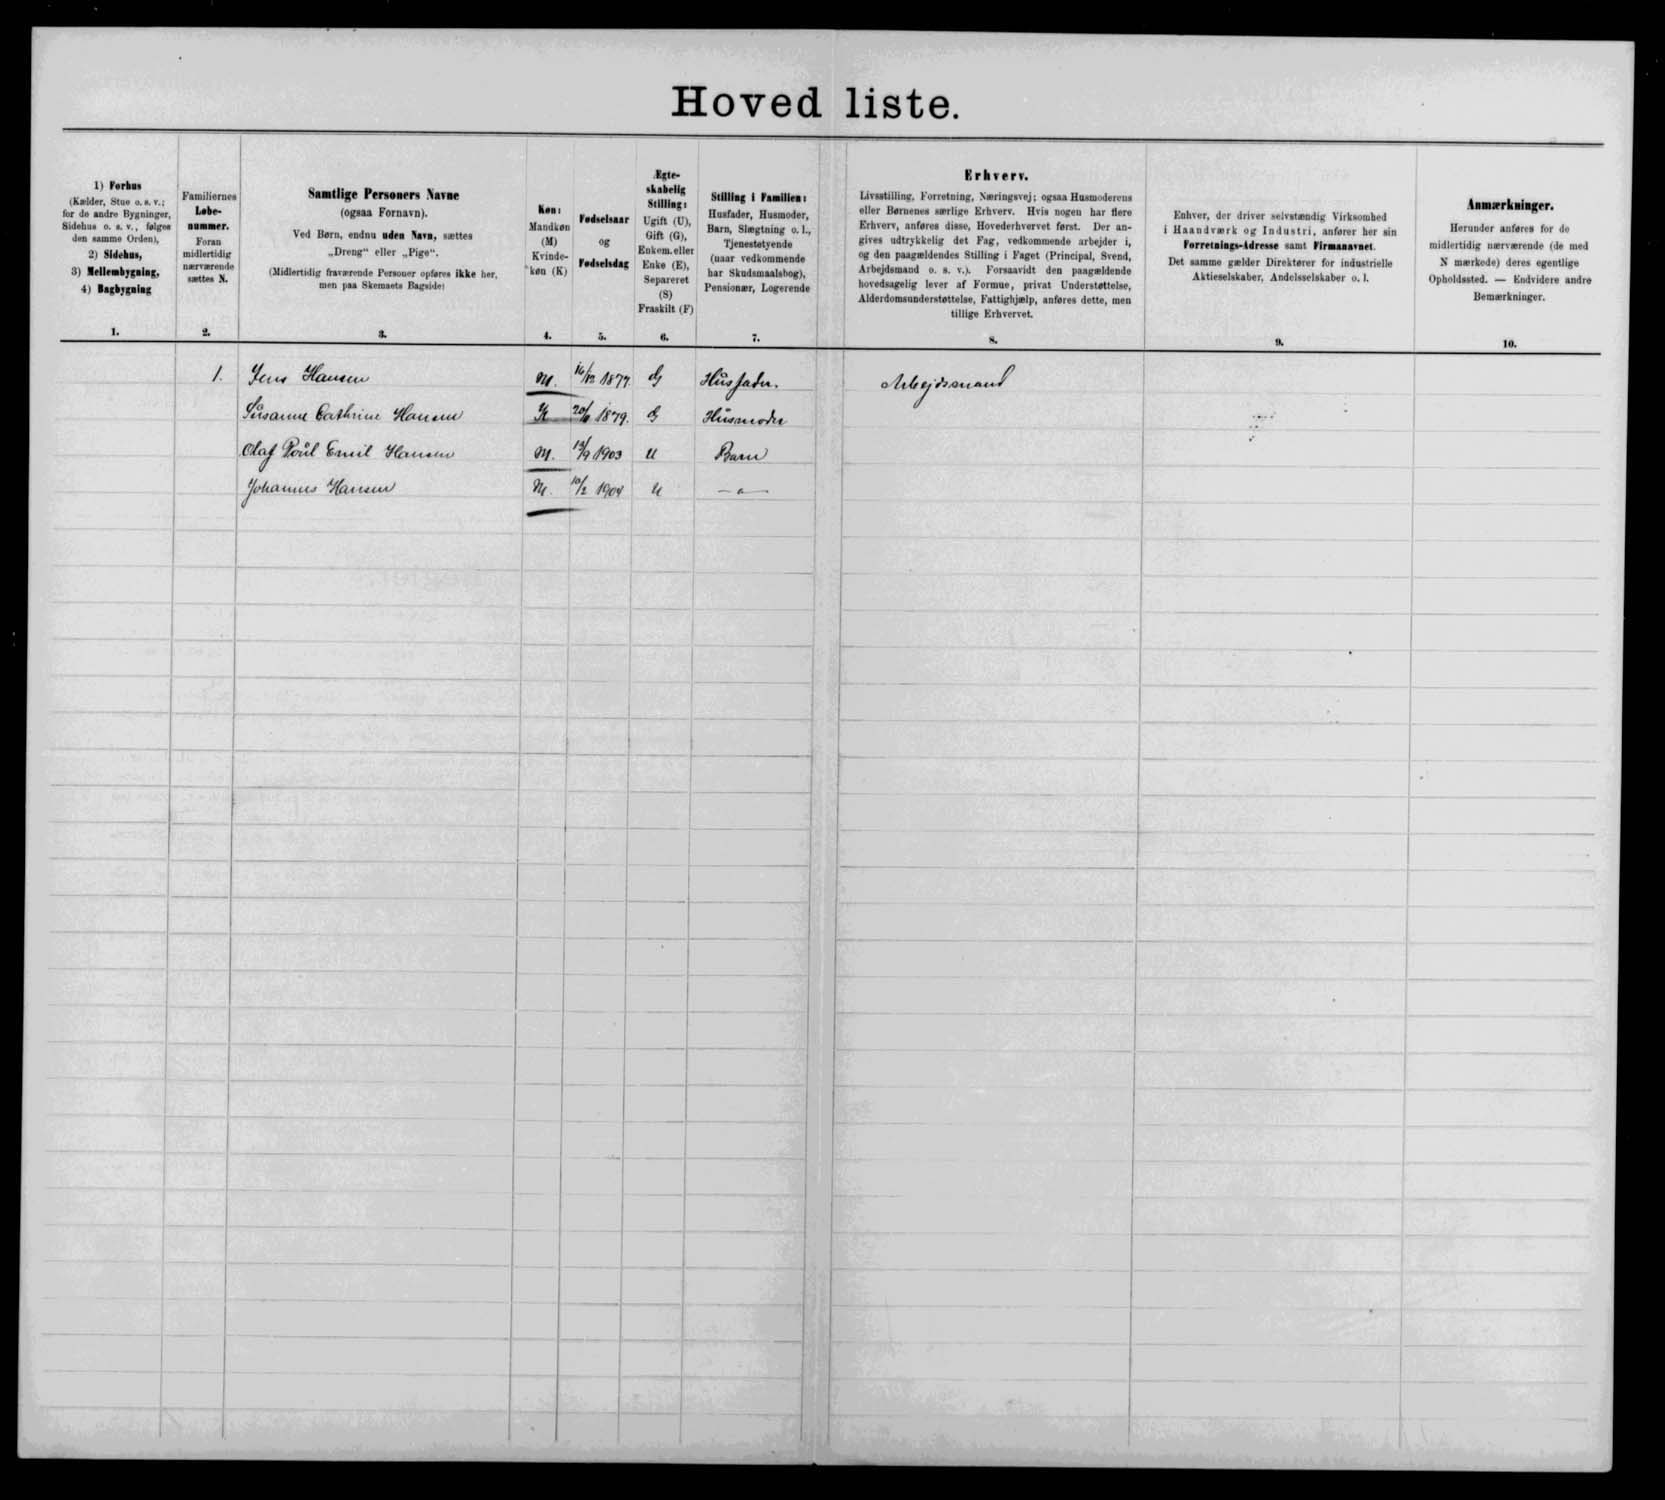 Hovedliste.
1) Forhus
(Kælder, Stue o. s. v.;
for de andre Bygninger,
Sidehus o. s. v., følges
den samme Orden),
2) Sidehus,
3) Mellembygning,
4) Bagbygning
1.
Familiernes
Løbe-
nummer.
Foran
midlertidig
nærværende
sættes N.
2.
Samtlige Personers Navne
(ogsaa Fornavn).
Ved Børn, endnu uden Navn, sættes
„Dreng“ eller „Pige“.
(Midlertidig fraværende Personer opføres ikke her,
men paa Skemaets Bagside)
3.
Køn:
Mandkøn
(M)
Kvinde-
køn (K)
4.
Fødselsaar
og
Fødselsdag
5.
Ægte-
skabelig
Stilling:
Ugift (U),
Gift (G),
Enkem. eller
Enke (E),
Separeret
(S)
Fraskilt (F)
6.
Stilling i Familien:
Husfader, Husmoder,
Barn, Slægtning o. l.,
Tjenestetyende
(naar vedkommende
har Skudsmaalsbog),
Pensionær, Logerende
7.
Erhverv.
Livsstilling, Forretning, Næringsvej; ogsaa Husmoderens
eller Børnenes særlige Erhverv. Hvis nogen har flere
Erhverv, anføres disse, Hovederhvervet først. Der an-
gives udtrykkelig det Fag, vedkommende arbejder i,
og den paagældendes Stilling i Faget (Principal, Svend,
Arbejdsmand o. s. v.). Forsaavidt den paagældende
hovedsagelig lever af Formue, privat Understøttelse,
Alderdomsunderstøttelse, Fattighjælp, anføres dette, men
tillige Erhvervet.
8.
Enhver, der driver selvstændig Virksomhed
i Haandværk og Industri, anfører her sin
Forretnings-Adresse samt Firmanavnet.
Det samme gælder Direktører for industrielle
Aktieselskaber, Andelsselskaber o. l.
9.
Anmærkninger.
Herunder anføres for de
midlertidig nærværende (de med
N mærkede) deres egentlige
Opholdssted. — Endvidere andre
Bemærkninger.
10.
1. Jens Hansen M. 16/12 1877. G Husfader. Arbejdsmand
Susanne Cathrine Hansen K 1879. G Husmoder
Olaf Poul Emil Hansen M. 1903 U Barn
Johannes Hansen M. 10/2 1904 U —"—